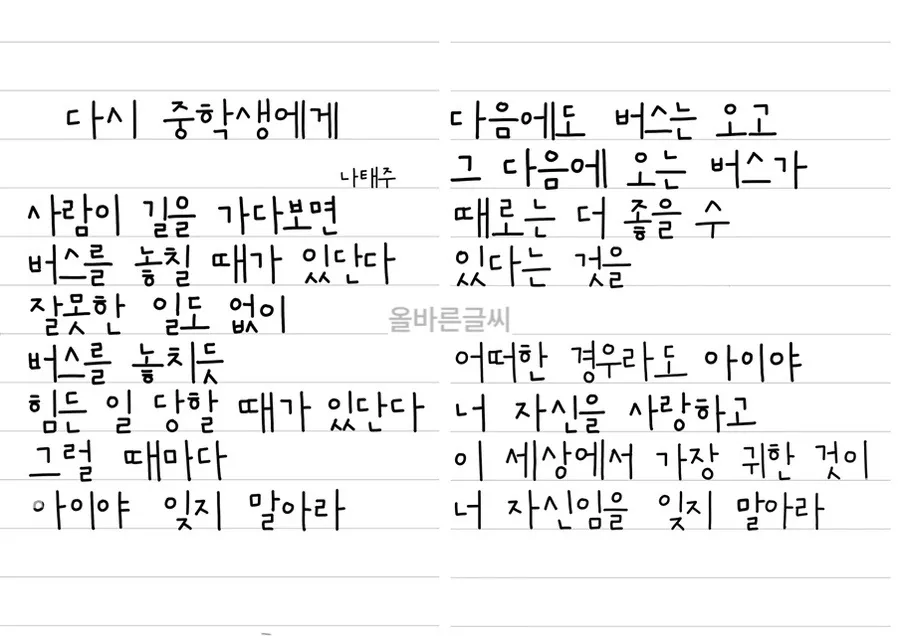 다시 중학생에게
나태주
사람이 길을 가다보면
버스를 놓칠 때가 있단다
잘못한 일도 없이
버스를 놓치듯
힘든 일 당할 때가 있단다
그럴 때마다
아이야 잊지 말아라
다음에도 버스는 오고
그 다음에 오는 버스가
때로는 더 좋을 수
있다는 것을
어떠한 경우라도 아이야
너 자신을 사랑하고
이 세상에서 가장 귀한 것이
너 자신임을 잊지 말아라
올바른글씨